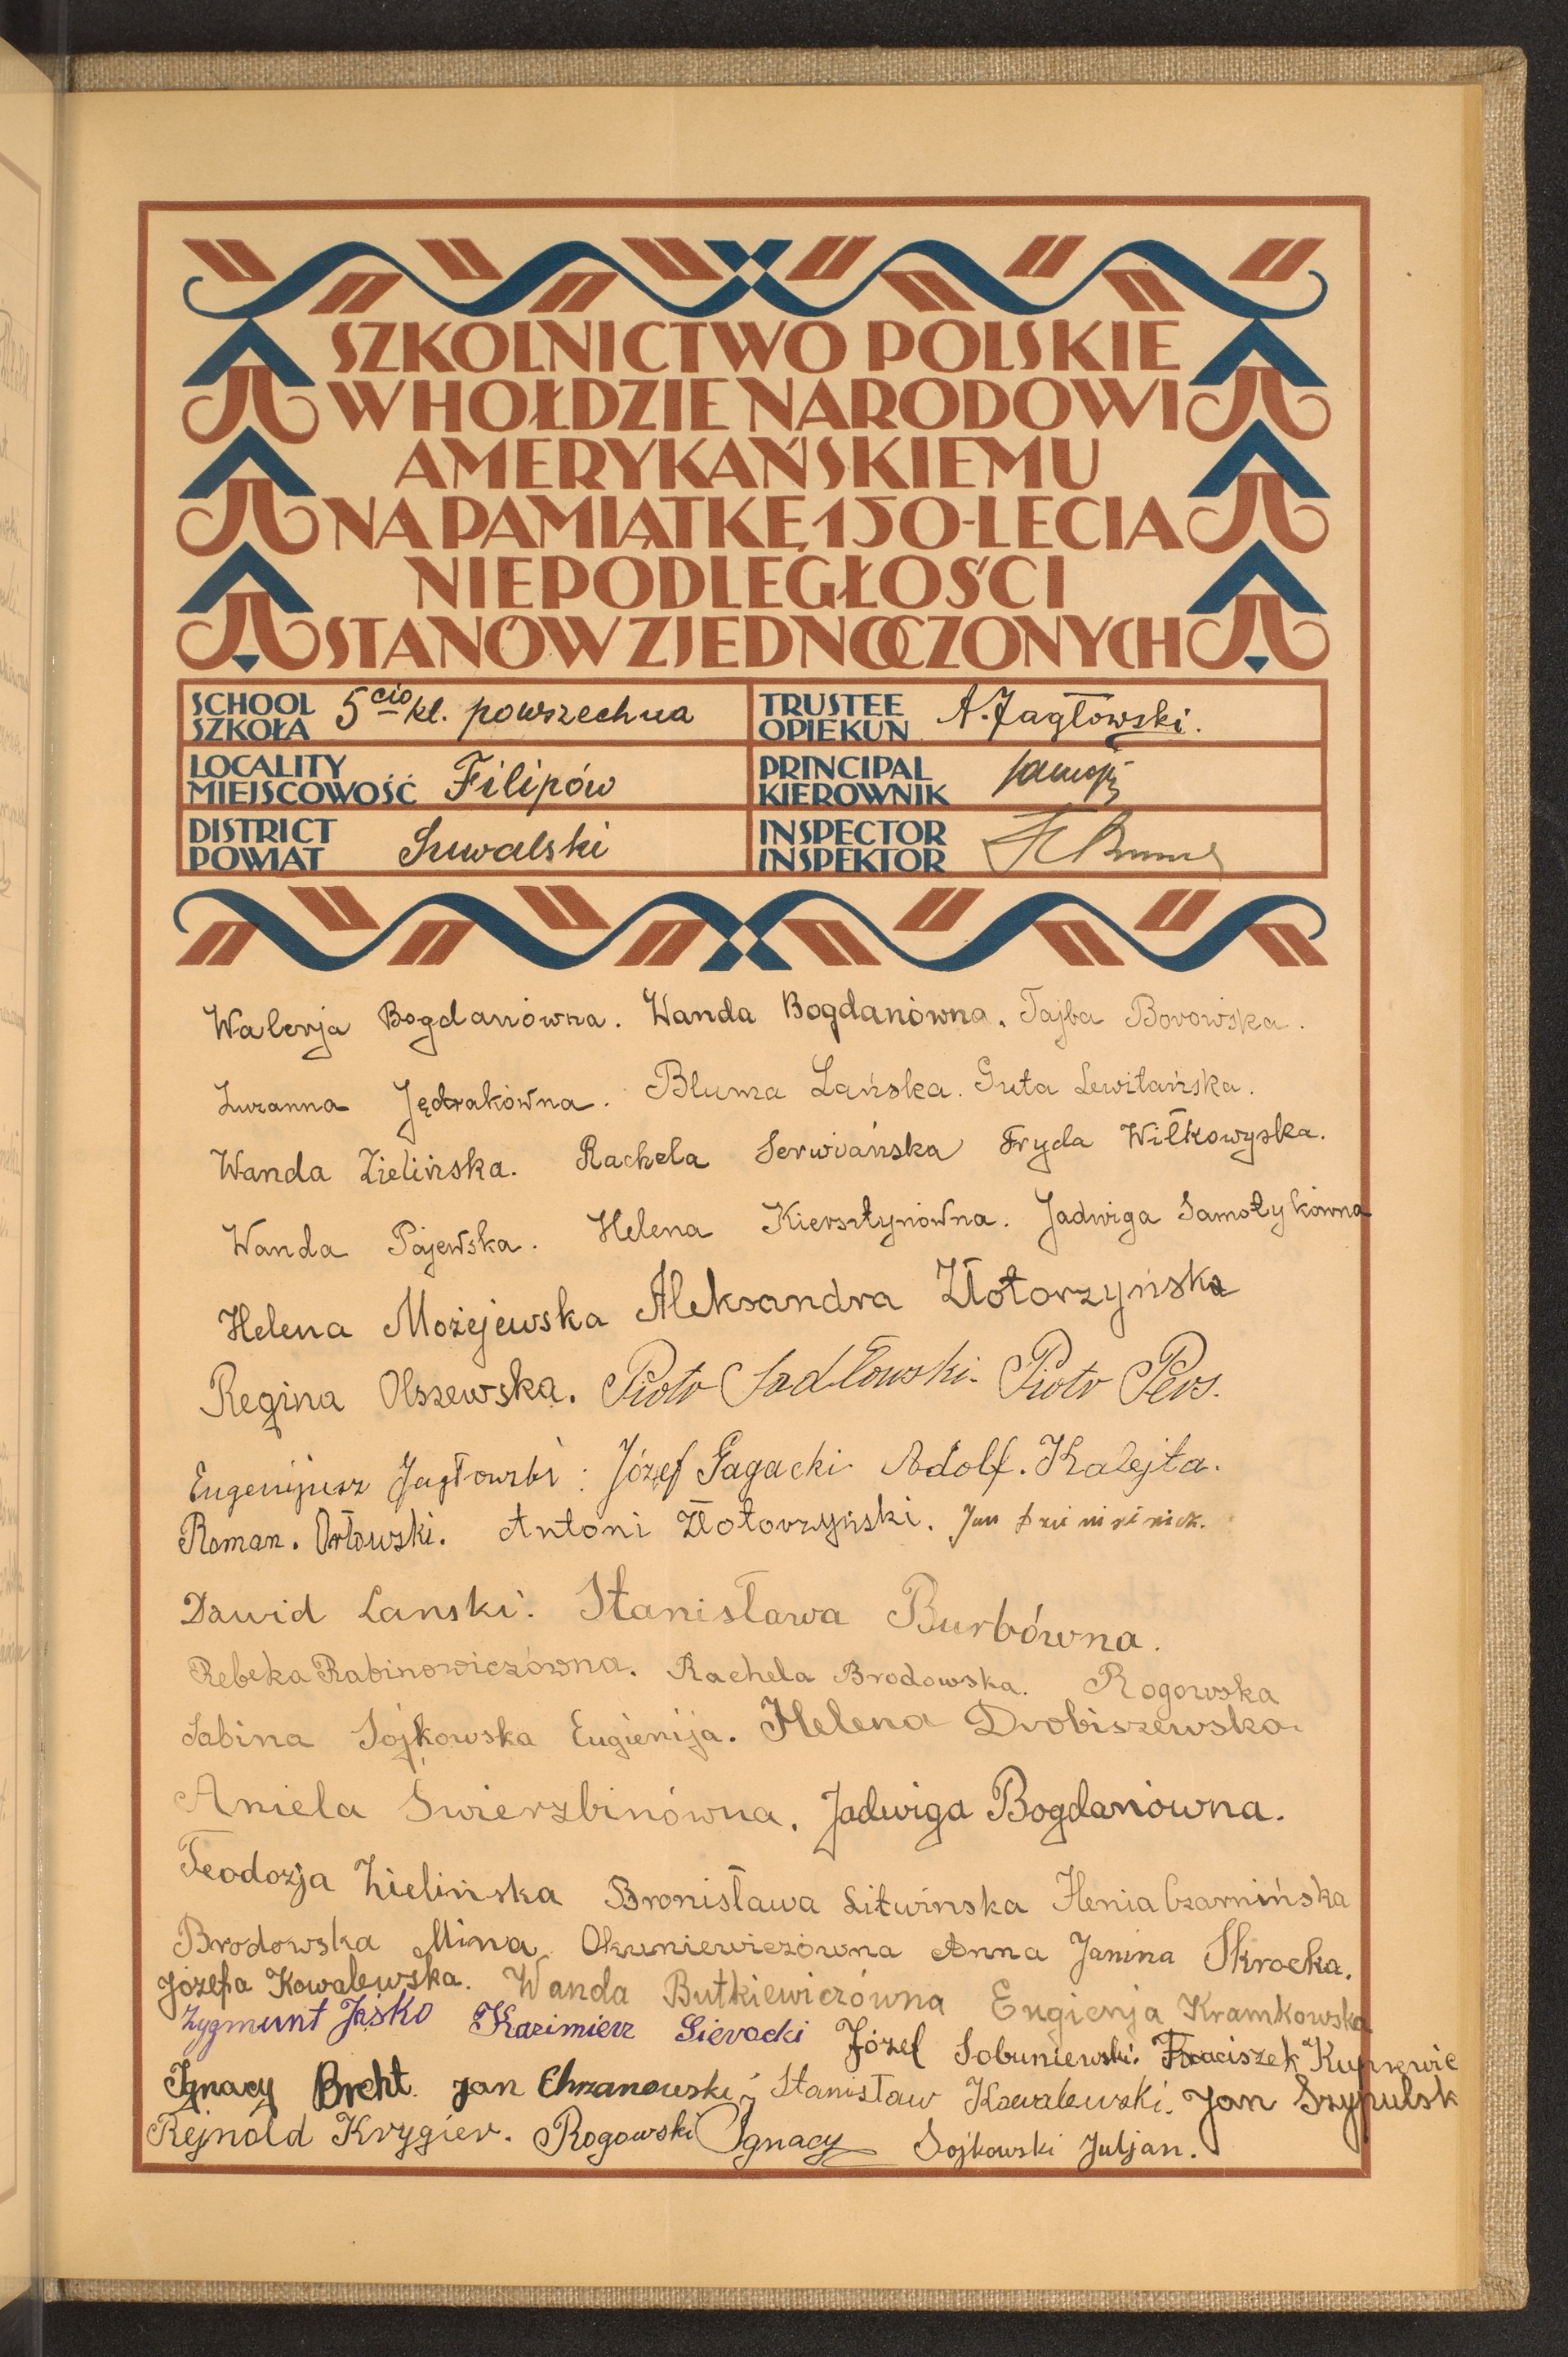 SZKOLNICTWO POLSKIE
W HOŁDZIE NARODOWI
AMERYKAŃSKIEMU
NA PAMIĄTKĘ 150-LECIA
NIEPODLEGŁOŚCI
STANÓW ZJEDNOCZONYCH
SCHOOL SZKOŁA 5cio kl. powszechna
TRUSTEE OPIEKUN A. Jagłowski.
LOCALITY MIEJSCOWOŚĆ Filipów
PRINCIPAL KIEROWNIK
DISTRICT POWIAT Suwalski
INSPECTOR INSPEKTOR
Walerja Bogdanówna. Wanda Bogdanówna. Tajba Borowska.
Zuzanna Jędrakówna. Bluma Lańska. Guta Lewitańska.
Wanda Zielińska. Rachela Serwiańska Fryda Wiłkowyska.
Wanda Pajewska. Helena Kiersztynówna. Jadwiga Samotykówna
Helena Możejewska Aleksandra Złotorzyńska
Regina Olszewska. Piotr Sadłowski. Piotr Pers.
Eugenijusz Jagłowski: Józef Gagacki. Adolf. Kalejta.
Roman. Orłowski. Antoni Złotorzyński. Jan
Dawid Lanski. Stanisława Burbówna.
Rebeka Rabinowiczówna. Rachela Brodowska. Rogowska
Sabina Sojkowska Eugienija. Helena Drobiszewska.
Aniela Świerzbinówna. Jadwiga Bogdanówna.
Teodozja Zielińska Bronisława Litwinska Henia Czarnińska
Brodowska Mina. Okuniewiczówna Anna Janina Skrocka.
Józefa Kowalewska. Wanda Butkiewiczówna Eugienja Kramkowska
Zygmunt Jaśko Kazimierz Sierocki Józef Sobuniewski. Franciszek
Ignacy Brcht. Jan Chrzanowski Stanisław Kowalewski. Jan Szypulsk
Rejnold Krygier. Rogowski Ignacy Sojkowski Juljan.